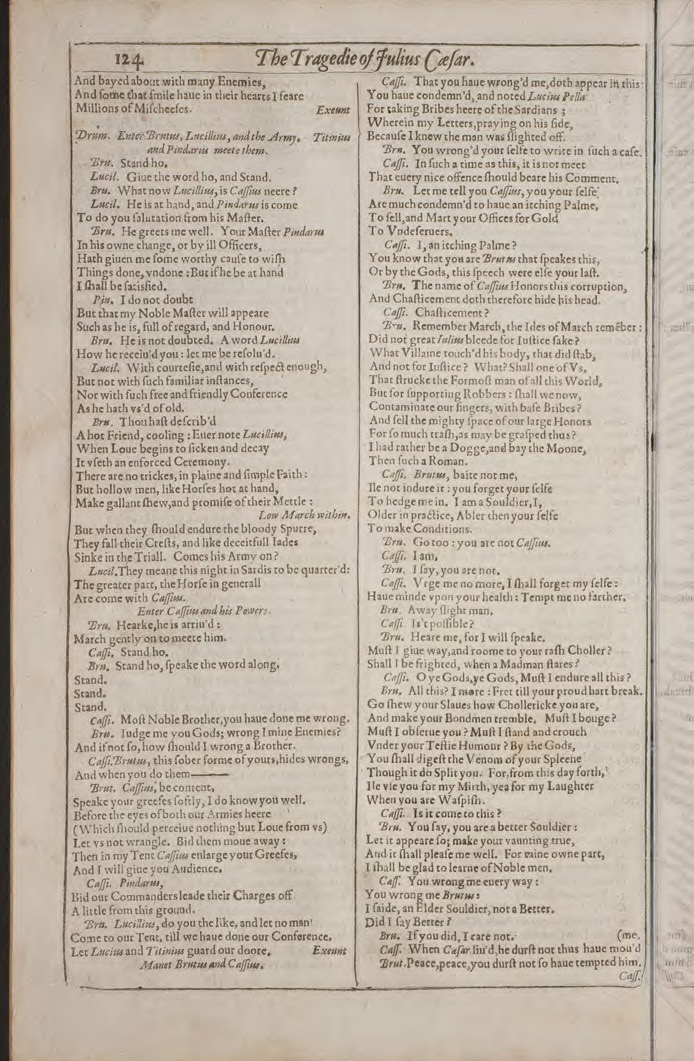 124
The Tragedie of Julius Cæsar.
And bayed about with many Enemies,
And some that smile haue in their hearts I feare
Millions of Mischeefes. Exeunt
Drum. Enter Brutus, Lucillius, and the Army. Titinius
and Pindarus meete them.
Bru. Stand ho.
Lucil. Giue the word ho, and Stand.
Bru. What now Lucillius, is Cassius neere?
Lucil. He is at hand, and Pindarus is come
To do you salutation from his Master.
Bru. He greets me well. Your Master Pindarus
In his owne change, or by ill Officers,
Hath giuen me some worthy cause to wish
Things done, vndone: But if he be at hand
I shall be satisfied.
Pin. I do not doubt
But that my Noble Master will appeare
Such as he is, full of regard, and Honour.
Bru. He is not doubted. A word Lucillius
How he receiu'd you: let me be resolu'd.
Lucil. With courtesie, and with respect enough,
But not with such familiar instances,
Nor with such free and friendly Conference
As he hath vs'd of old.
Bru. Thou hast describ'd
A hot Friend, cooling: Euer note Lucillius,
When Loue begins to sicken and decay
It vseth an enforced Ceremony.
There are no trickes, in plaine and simple Faith:
But hollow men, like Horses hot at hand,
Make gallant shew, and promise of their Mettle:
Low March within.
But when they should endure the bloody Spurre,
They fall their Crests, and like deceitfull Iades
Sinke in the Triall. Comes his Army on?
Lucil. They meane this night in Sardis to be quarter'd:
The greater part, the Horse in generall
Are come with Cassius.
Enter Cassius and his Powers.
Bru. Hearke, he is arriu'd:
March gently on to meete him.
Cassi. Stand ho.
Bru. Stand ho, speake the word along.
Stand.
Stand.
Stand.
Cassi. Most Noble Brother, you haue done me wrong.
Bru. Iudge me you Gods; wrong I mine Enemies?
And if not so, how should I wrong a Brother.
Cassi. Brutus, this sober forme of yours, hides wrongs,
And when you do them——
Brut. Cassius, be content,
Speake your greefes softly, I do know you well.
Before the eyes of both our Armies heere
(Which should perceiue nothing but Loue from vs)
Let vs not wrangle. Bid them moue away:
Then in my Tent Cassius enlarge your Greefes,
And I will giue you Audience.
Cassi. Pindarus,
Bid our Commanders leade their Charges off
A little from this ground.
Bru. Lucillius, do you the like, and let no man
Come to our Tent, till we haue done our Conference.
Let Lucius and Titinius guard our doore. Exeunt
Manet Brutus and Cassius.
Cassi. That you haue wrong'd me, doth appear in this:
You haue condemn'd, and noted Lucius Pella
For taking Bribes heere of the Sardians;
Wherein my Letters, praying on his side,
Because I knew the man was slighted off.
Bru. You wrong'd your selfe to write in such a case.
Cassi. In such a time as this, it is not meet
That euery nice offence should beare his Comment.
Bru. Let me tell you Cassius, you your selfe
Are much condemn'd to haue an itching Palme,
To sell, and Mart your Offices for Gold
To Vndeseruers.
Cassi. I, an itching Palme?
You know that you are Brutus that speakes this,
Or by the Gods, this speech were else your last.
Bru. The name of Cassius Honors this corruption,
And Chasticement doth therefore hide his head.
Cassi. Chasticement?
Bru. Remember March, the Ides of March remēber:
Did not great Iulius bleede for Iustice sake?
What Villaine touch'd his body, that did stab,
And not for Iustice? What? Shall one of Vs,
That strucke the Formost man of all this World,
But for supporting Robbers: shall we now,
Contaminate our fingers, with base Bribes?
And sell the mighty space of our large Honors
For so much trash, as may be grasped thus?
I had rather be a Dogge, and bay the Moone,
Then such a Roman.
Cassi. Brutus, baite not me,
Ile not indure it: you forget your selfe
To hedge me in. I am a Souldier, I,
Older in practice, Abler then your selfe
To make Conditions.
Bru. Go too: you are not Cassius.
Cassi. I am.
Bru. I say, you are not.
Cassi. Vrge me no more, I shall forget my selfe:
Haue minde vpon your health: Tempt me no farther.
Bru. Away slight man.
Cassi. Is't possible?
Bru. Heare me, for I will speake.
Must I giue way, and roome to your rash Choller?
Shall I be frighted, when a Madman stares?
Cassi. O ye Gods, ye Gods, Must I endure all this?
Bru. All this? I more: Fret till your proud hart break.
Go shew your Slaues how Chollericke you are,
And make your Bondmen tremble. Must I bouge?
Must I obserue you? Must I stand and crouch
Vnder your Testie Humour? By the Gods,
You shall digest the Venom of your Spleene
Though it do Split you. For, from this day forth,
Ile vse you for my Mirth, yea for my Laughter
When you are Waspish.
Cassi. Is it come to this?
Bru. You say, you are a better Souldier:
Let it appeare so; make your vaunting true,
And it shall please me well. For mine owne part,
I shall be glad to learne of Noble men.
Cass. You wrong me euery way:
You wrong me Brutus:
I saide, an Elder Souldier, not a Better.
Did I say Better?
Bru. If you did, I care not. (me.
Cass. When Cæsar liu'd, he durst not thus haue mou'd
Brut. Peace, peace, you durst not so haue tempted him.
Cass.